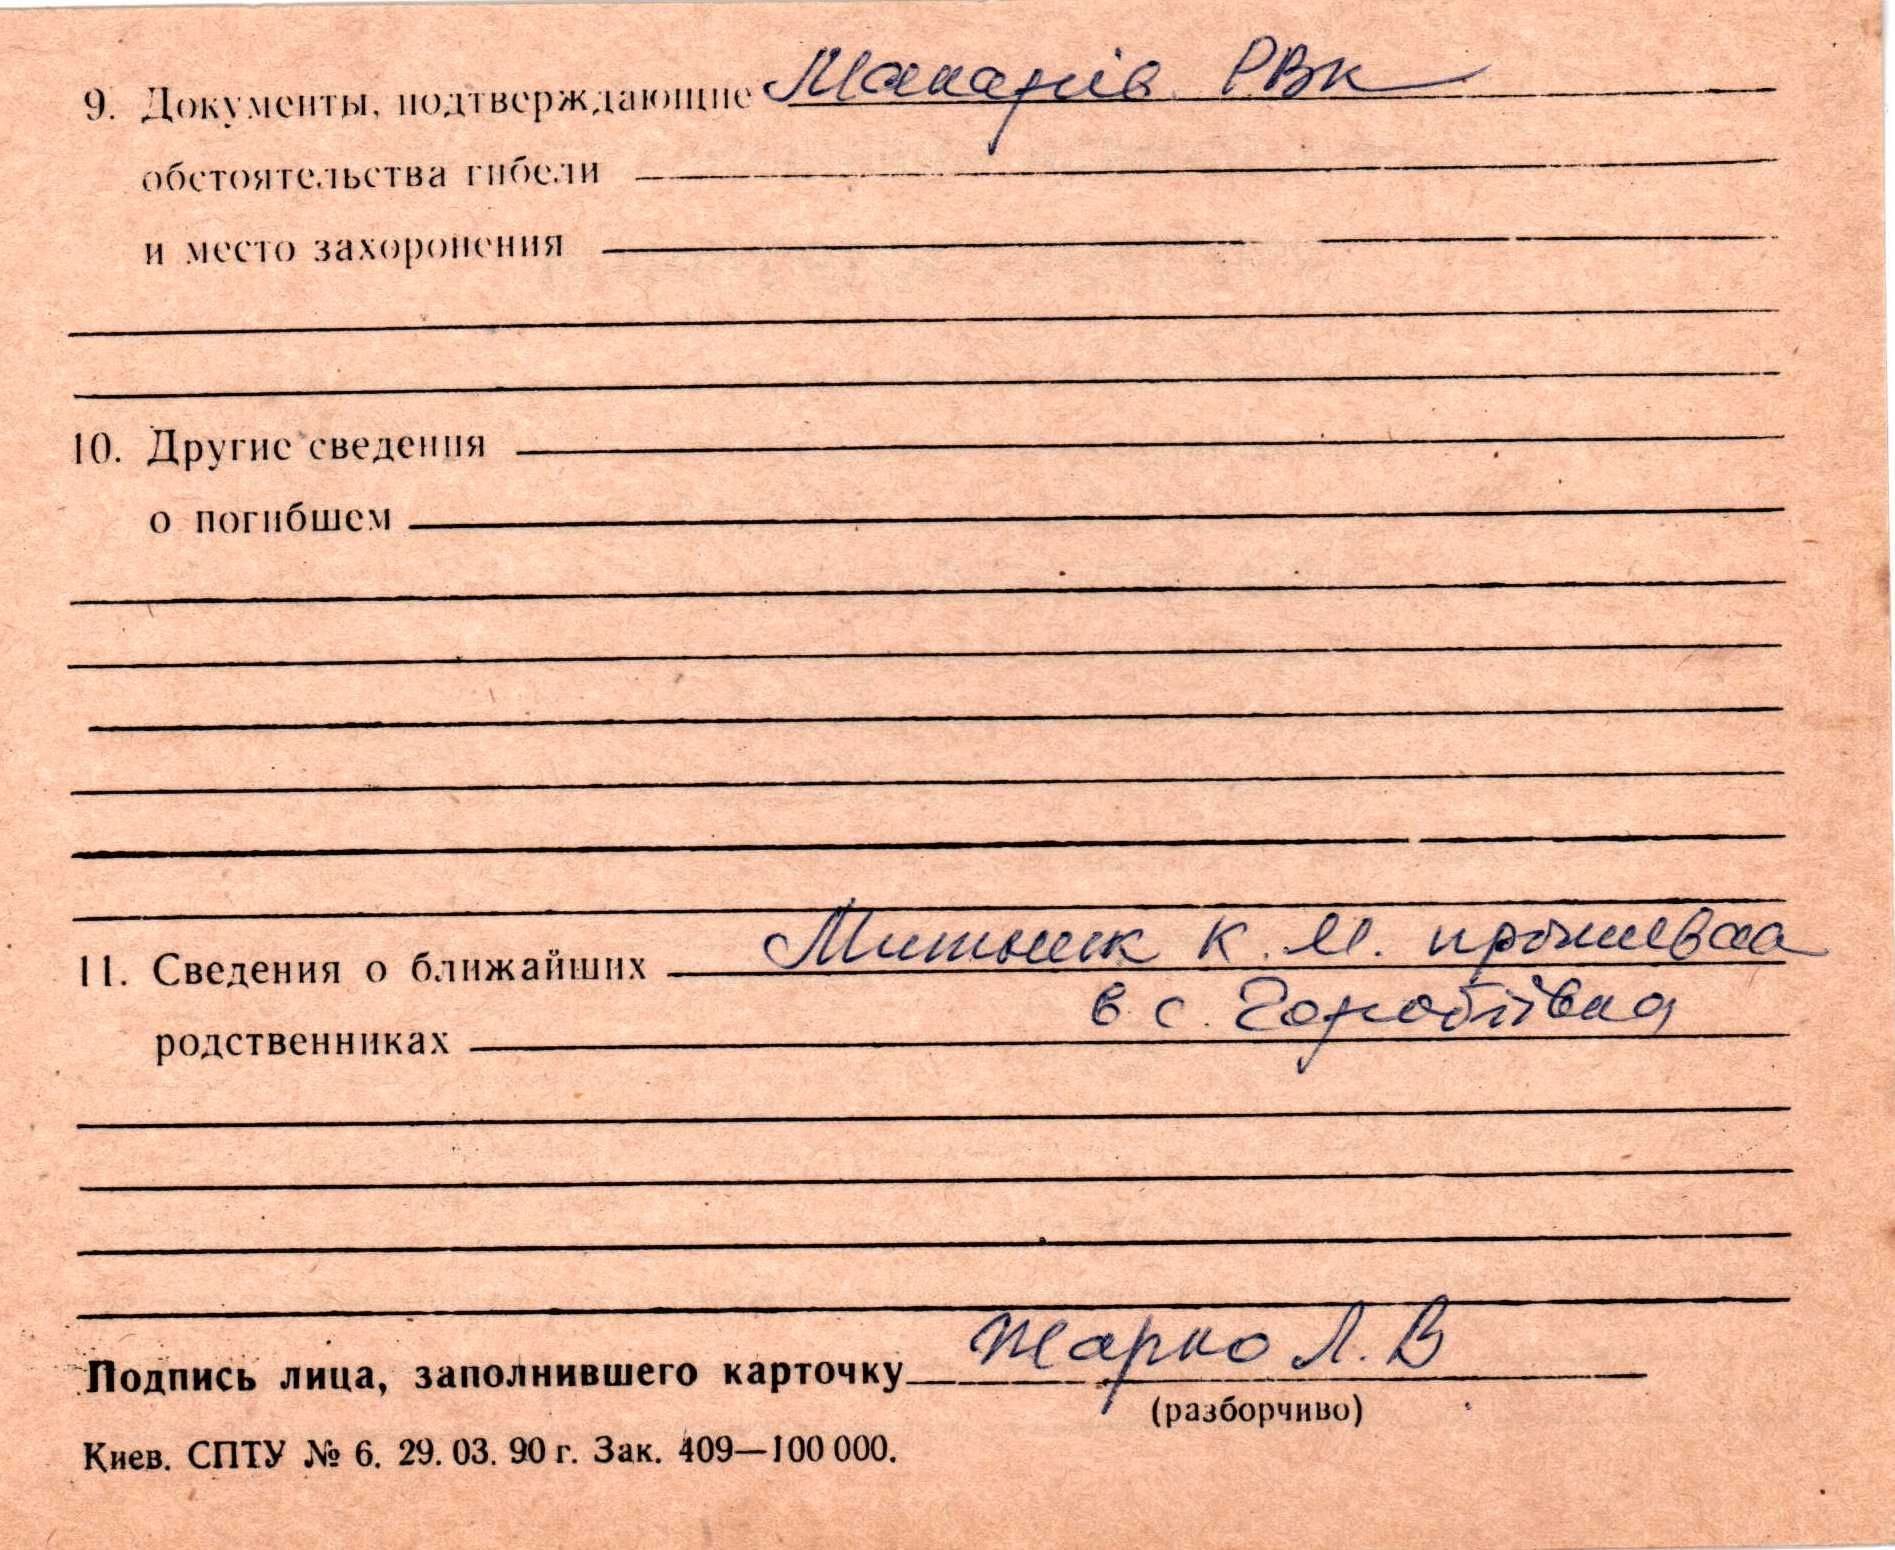 9. Документы, подтверждающие Макарів РВК
обстоятельства гибели
и место захоронения
10. Другие сведения
о погибшем
11. Сведения о ближайших Митник К. М. проживала
родственниках в с. Горобіївка
Подпись лица, заполнившего карточку Жарко Л. В
(разборчиво)
Киев. СПТУ № 6. 29. 03. 90 г. Зак. 409—100 000.